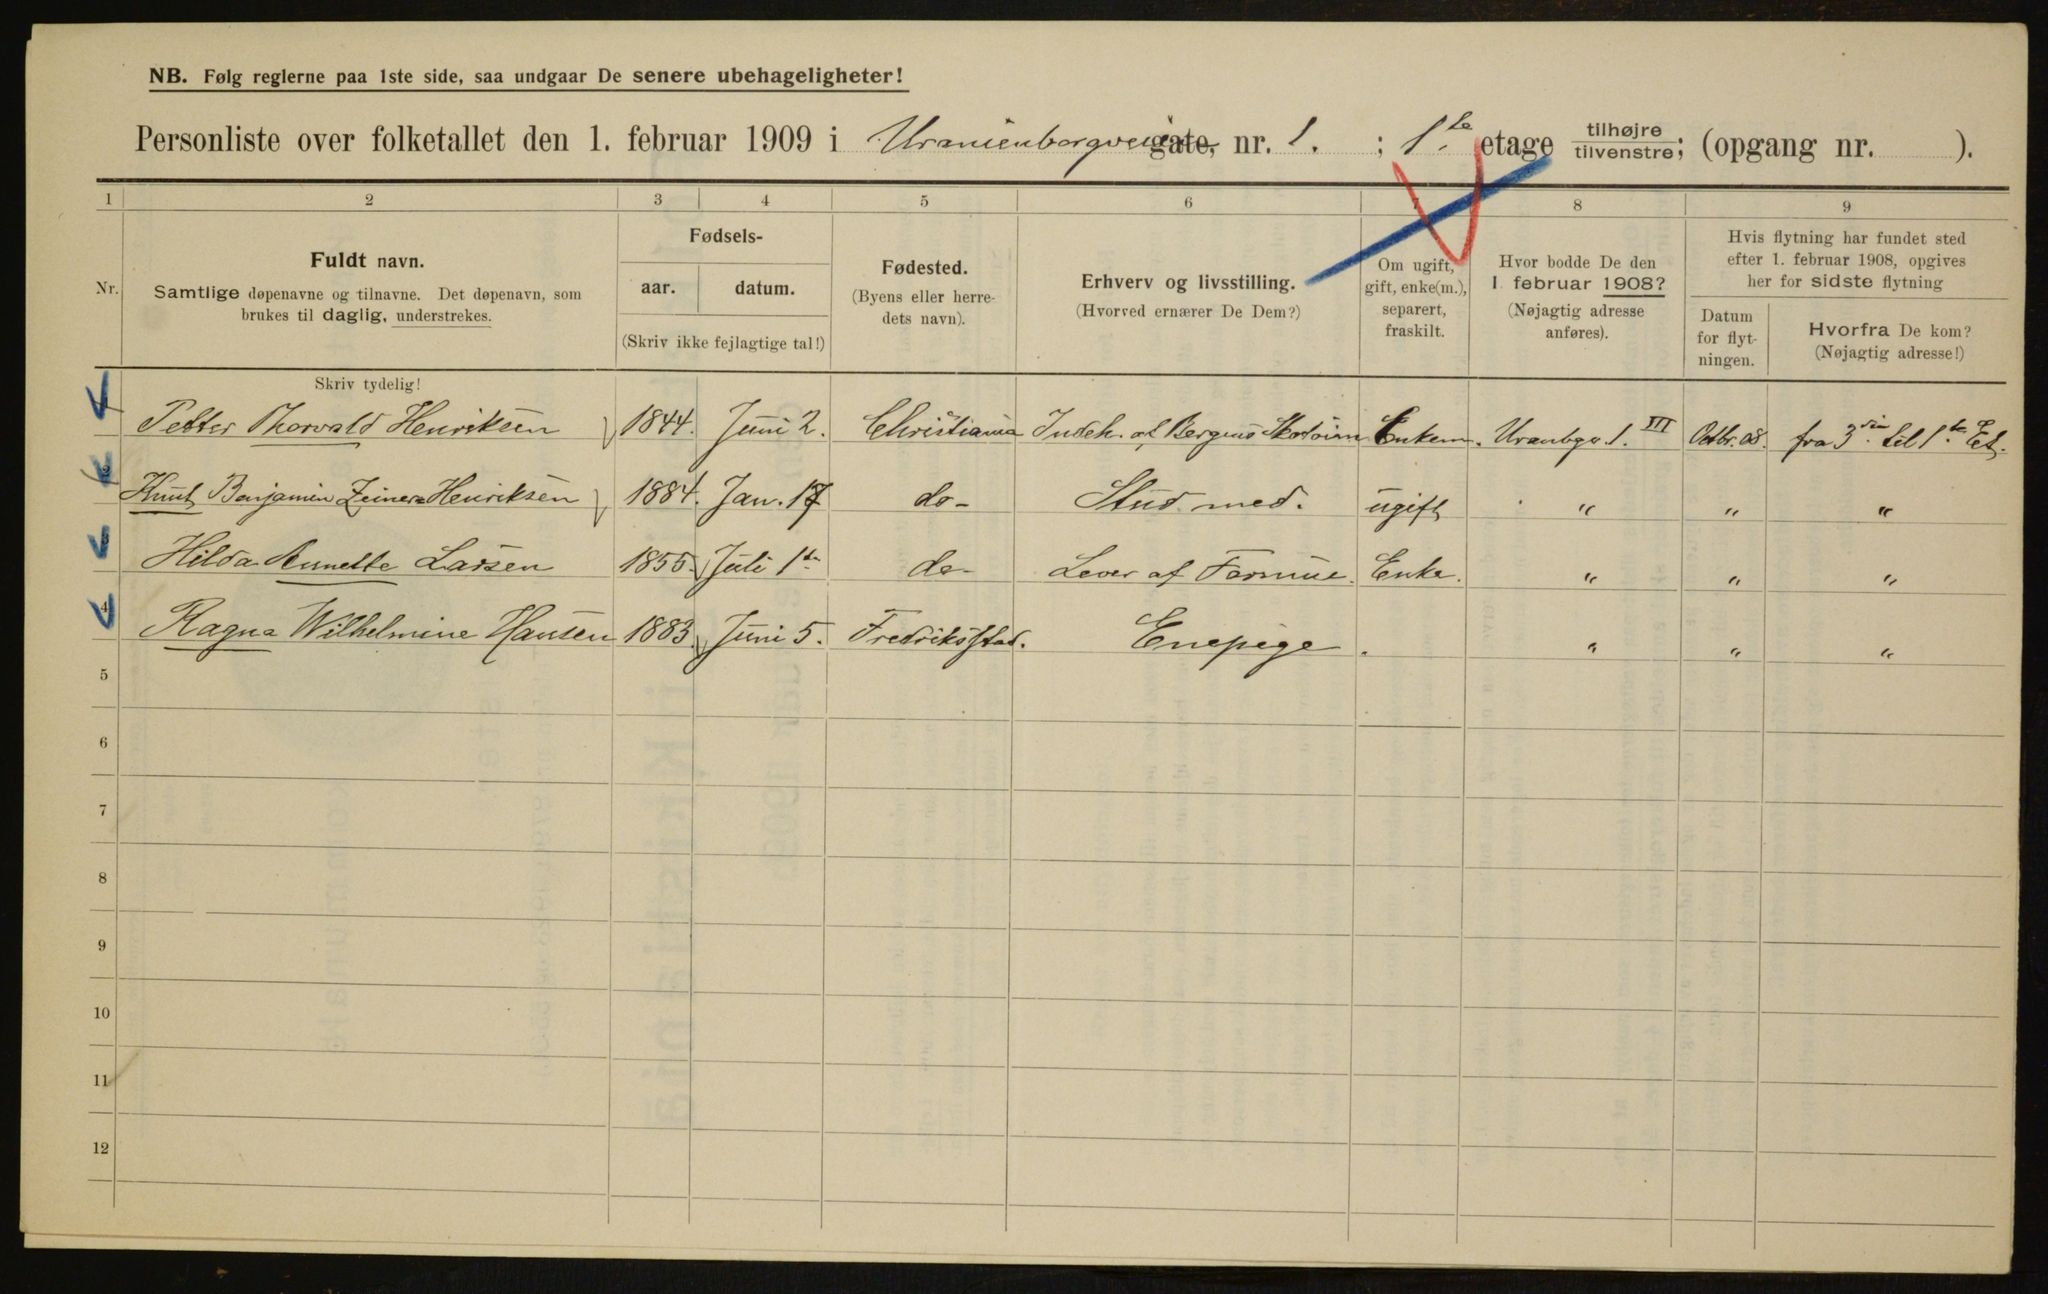 NB. Følg reglerne paa 1ste side, saa undgaar De senere ubehageligheter!
Personliste over folketallet den 1. februar 1909 i Uranienborgveien gate, nr. 1. ; 1.te etage tilhøjre tilvenstre; (opgang nr. ).
1 2 3 4 5 6 7 8 9
Nr.
Fuldt navn.
Samtlige døpenavne og tilnavne. Det døpenavn, som
brukes til daglig, understrekes.
Fødsels-
aar. datum.
(Skriv ikke fejlagtige tal!)
Fødested.
(Byens eller herre-
dets navn).
Erhverv og livsstilling.
(Hvorved ernærer De Dem?)
Om ugift,
gift, enke(m.),
separert,
fraskilt.
Hvor bodde De den
1 februar 1908?
(Nøjagtig adresse
anføres).
Hvis flytning har fundet sted
efter 1. februar 1908, opgives
her for sidste flytning
Datum
for flyt-
ningen.
Hvorfra De kom?
(Nøjagtig adresse!)
Skriv tydelig!
Petter Thorvald Henriksen 1844. Juni 2. Christiania Indeh. af Bergens Enkem. Uranbgv. 1. III Octbr. 08. fra 3die til 1.te Et.
2 Knut Benjamin Zeiner Henriksen 1884. Jan. 17 do- Stud. med. ugift " " "
3 Hilda Annette Larsen 1855. Juli 1te do- Lever af Formue. Enke. " " "
4 Ragna Wilhelmine Hansen 1883. Juni 5. Fredriksstad. Enepige . " " "
5
6
7
8
9
10
11
12